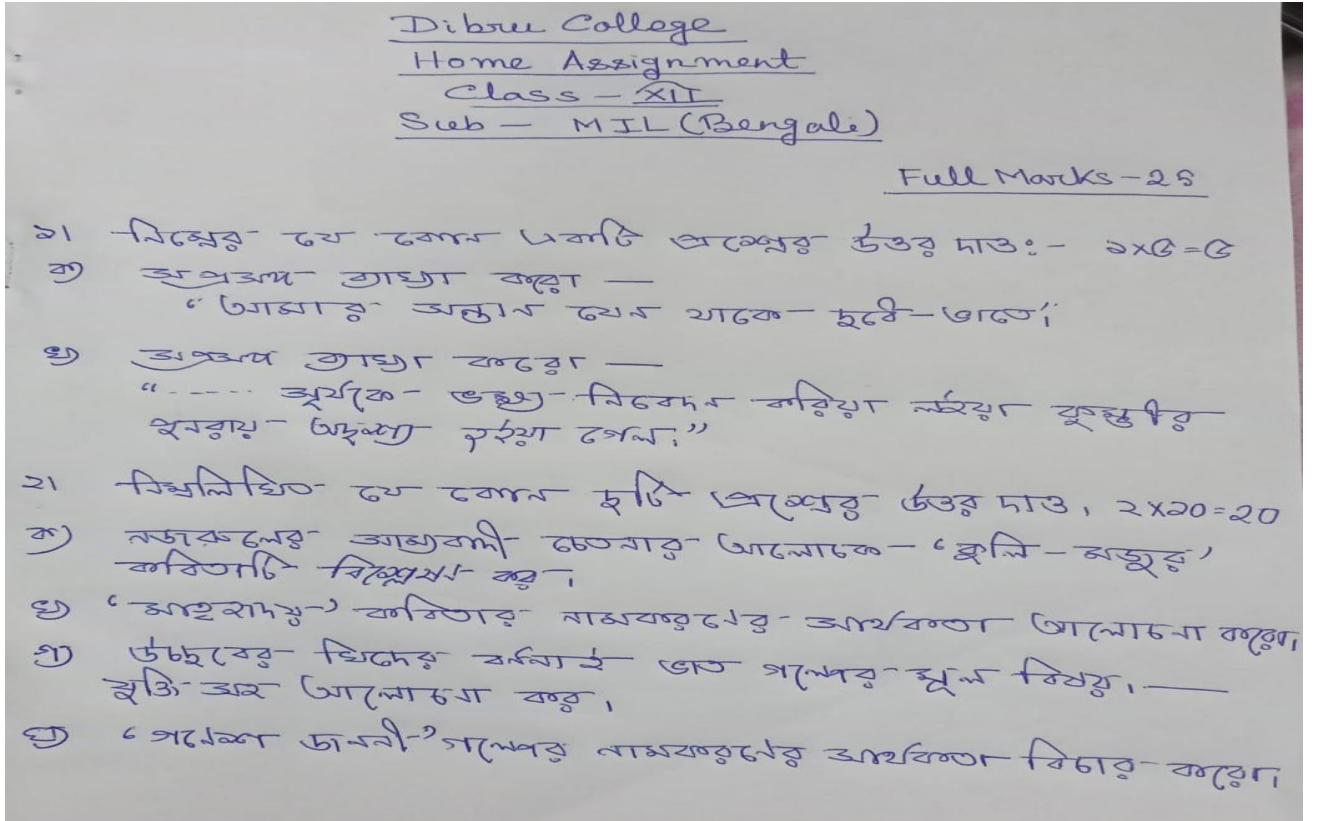 Dibru College
Home Assignment
Class - XII
Sub - MIL (Bengali)
Full Marks - 25
১। নিম্নের যে কোন একটি প্রশ্নের উত্তর দাও:- ১x৫=৫
ক) সপ্রসঙ্গ ব্যাখ্যা করো —
"আমার সন্তান যেন থাকে দুধে-ভাতে।
খ) সপ্রসঙ্গ ব্যাখ্যা করো —
"...... সূর্যকে ভক্তি নিবেদন করিয়া লইয়া কুম্ভীর
পুনরায় অদৃশ্য হইয়া গেল।"
২। নিম্নলিখিত যে কোন দুটি প্রশ্নের উত্তর দাও, ২x১০=২০
ক) নজরুলের সাম্যবাদী চেতনার আলোকে 'কুলি-মজুর'
কবিতাটি বিশ্লেষণ কর।
খ) কবিতার নামকরণের সার্থকতা আলোচনা করো।
গ) উচ্ছবের খিদের বর্ননাই ভাত গল্পের মূল বিষয়। —
যুক্তি সহ আলোচনা কর।
ঘ) 'গনেশ জননী' গল্পের নামকরণের সার্থকতা বিচার করো।